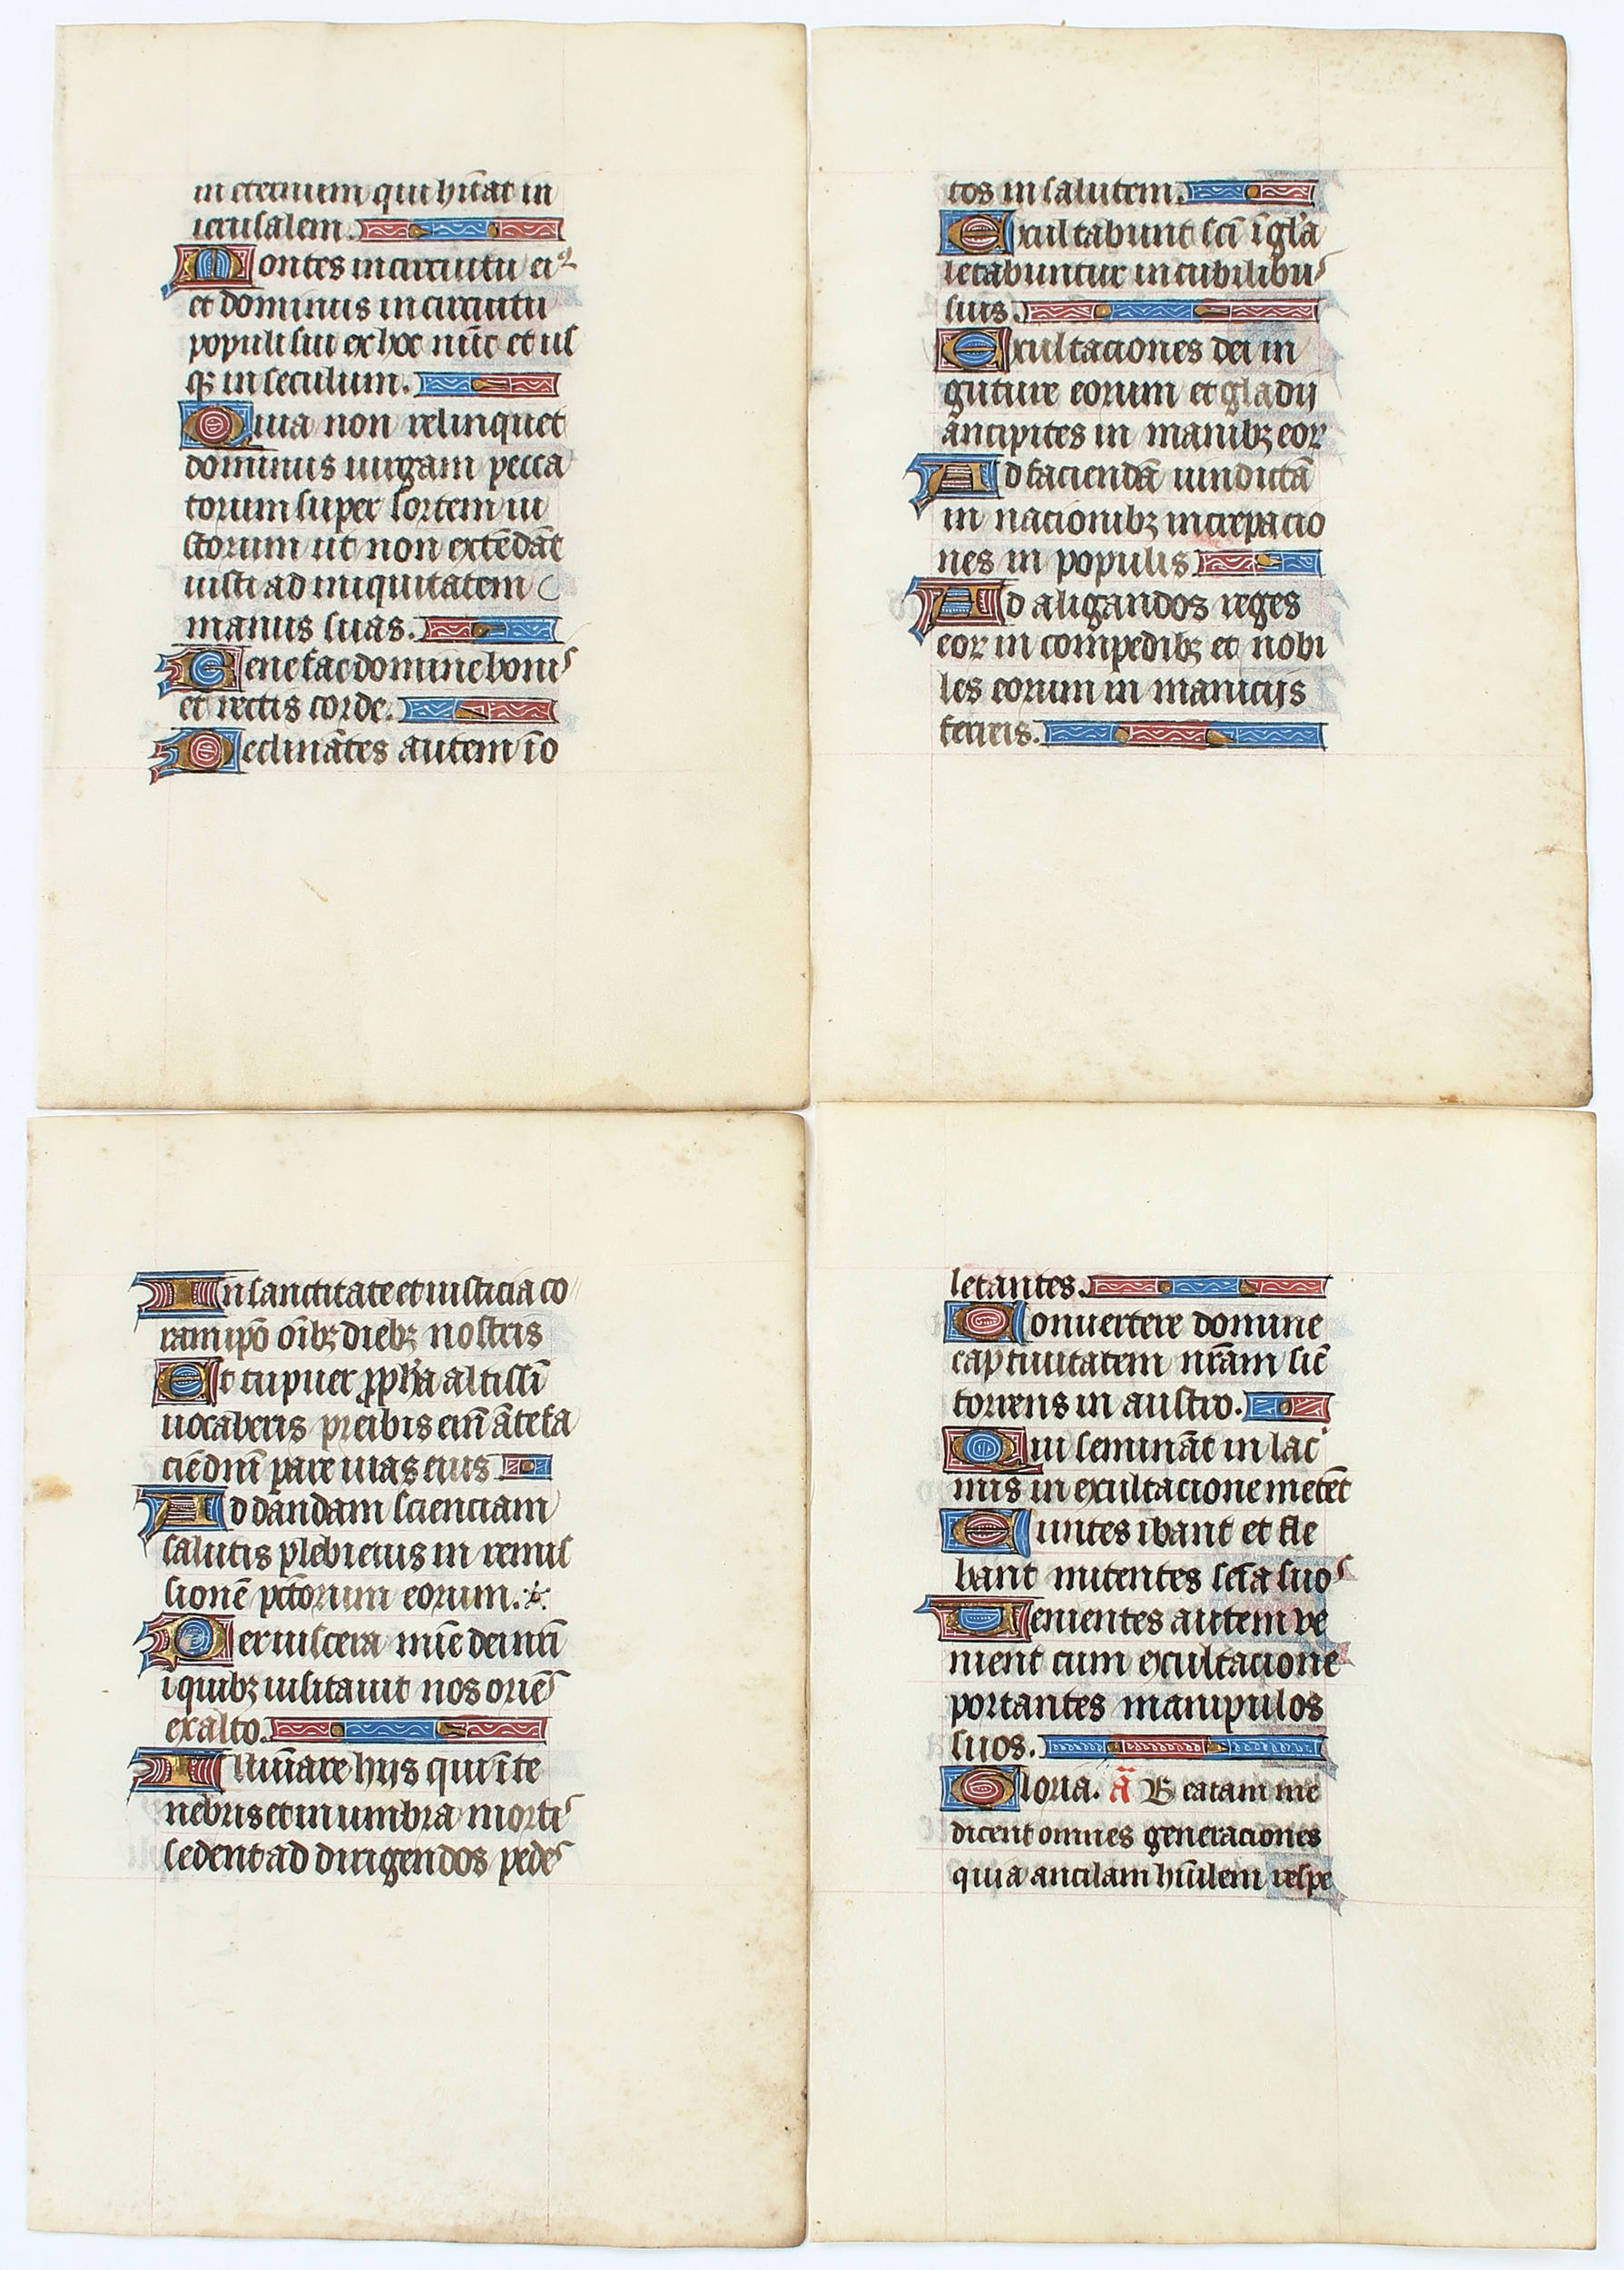 in eternum qui hītat in
ierusalem.
Montes in circuitu eiꝰ
et dominus in circuitu
populi sui ex hoc nūc et us
qꝫ in seculum.
Quia non relinquet
dominus uirgam pecca
torum super sortem iu
storum ut non extēdāt
iusti ad iniquitatem
manus suas.
Benefac domine bonis
et rectis corde.
Declinātes autem īo
tos in salutem.
Exultabunt sci ī gla
letabuntur in cubilibus
suis.
Exultaciones dei in
guture eorum et gladij
ancipites in manibꝫ eoꝝ
Ad faciendā uindictā
in nacionibꝫ increpacio
nes in populis
Ad aligandos reges
eoꝝ in compedibꝫ et nobi
les eorum in manicijs
ferreis.
In sanctitate et iusticia co
ram ipō oībꝫ diebꝫ nostris
Et tu puer ꝓpha altissī
uocaberis preibis eīn āte fa
ciē dnī pare uias eius
Ad dandam scienciam
salutis plebi eius in remis
sionē pctorum eorum.
Per uiscera mīe dei nrī
ī quibꝫ uisitauit nos oriēs
ex alto.
Illumīare hijs qui ī te
nebris et in umbra mortis
sedent ad dirigendos pedes
letantes.
Conuertere domine
captiuitatem nrām sic̄
torrens in austro.
Qui semināt in lac
mis in exultacione metēt
Euntes ibant et fle
bant mitentes seīa suos
Uenientes autem ve
nient cum exultacione
portantes manipulos
suos.
Gloria. ā Beatam me
dicent omnes generaciones
quia ancilam hūilem respe